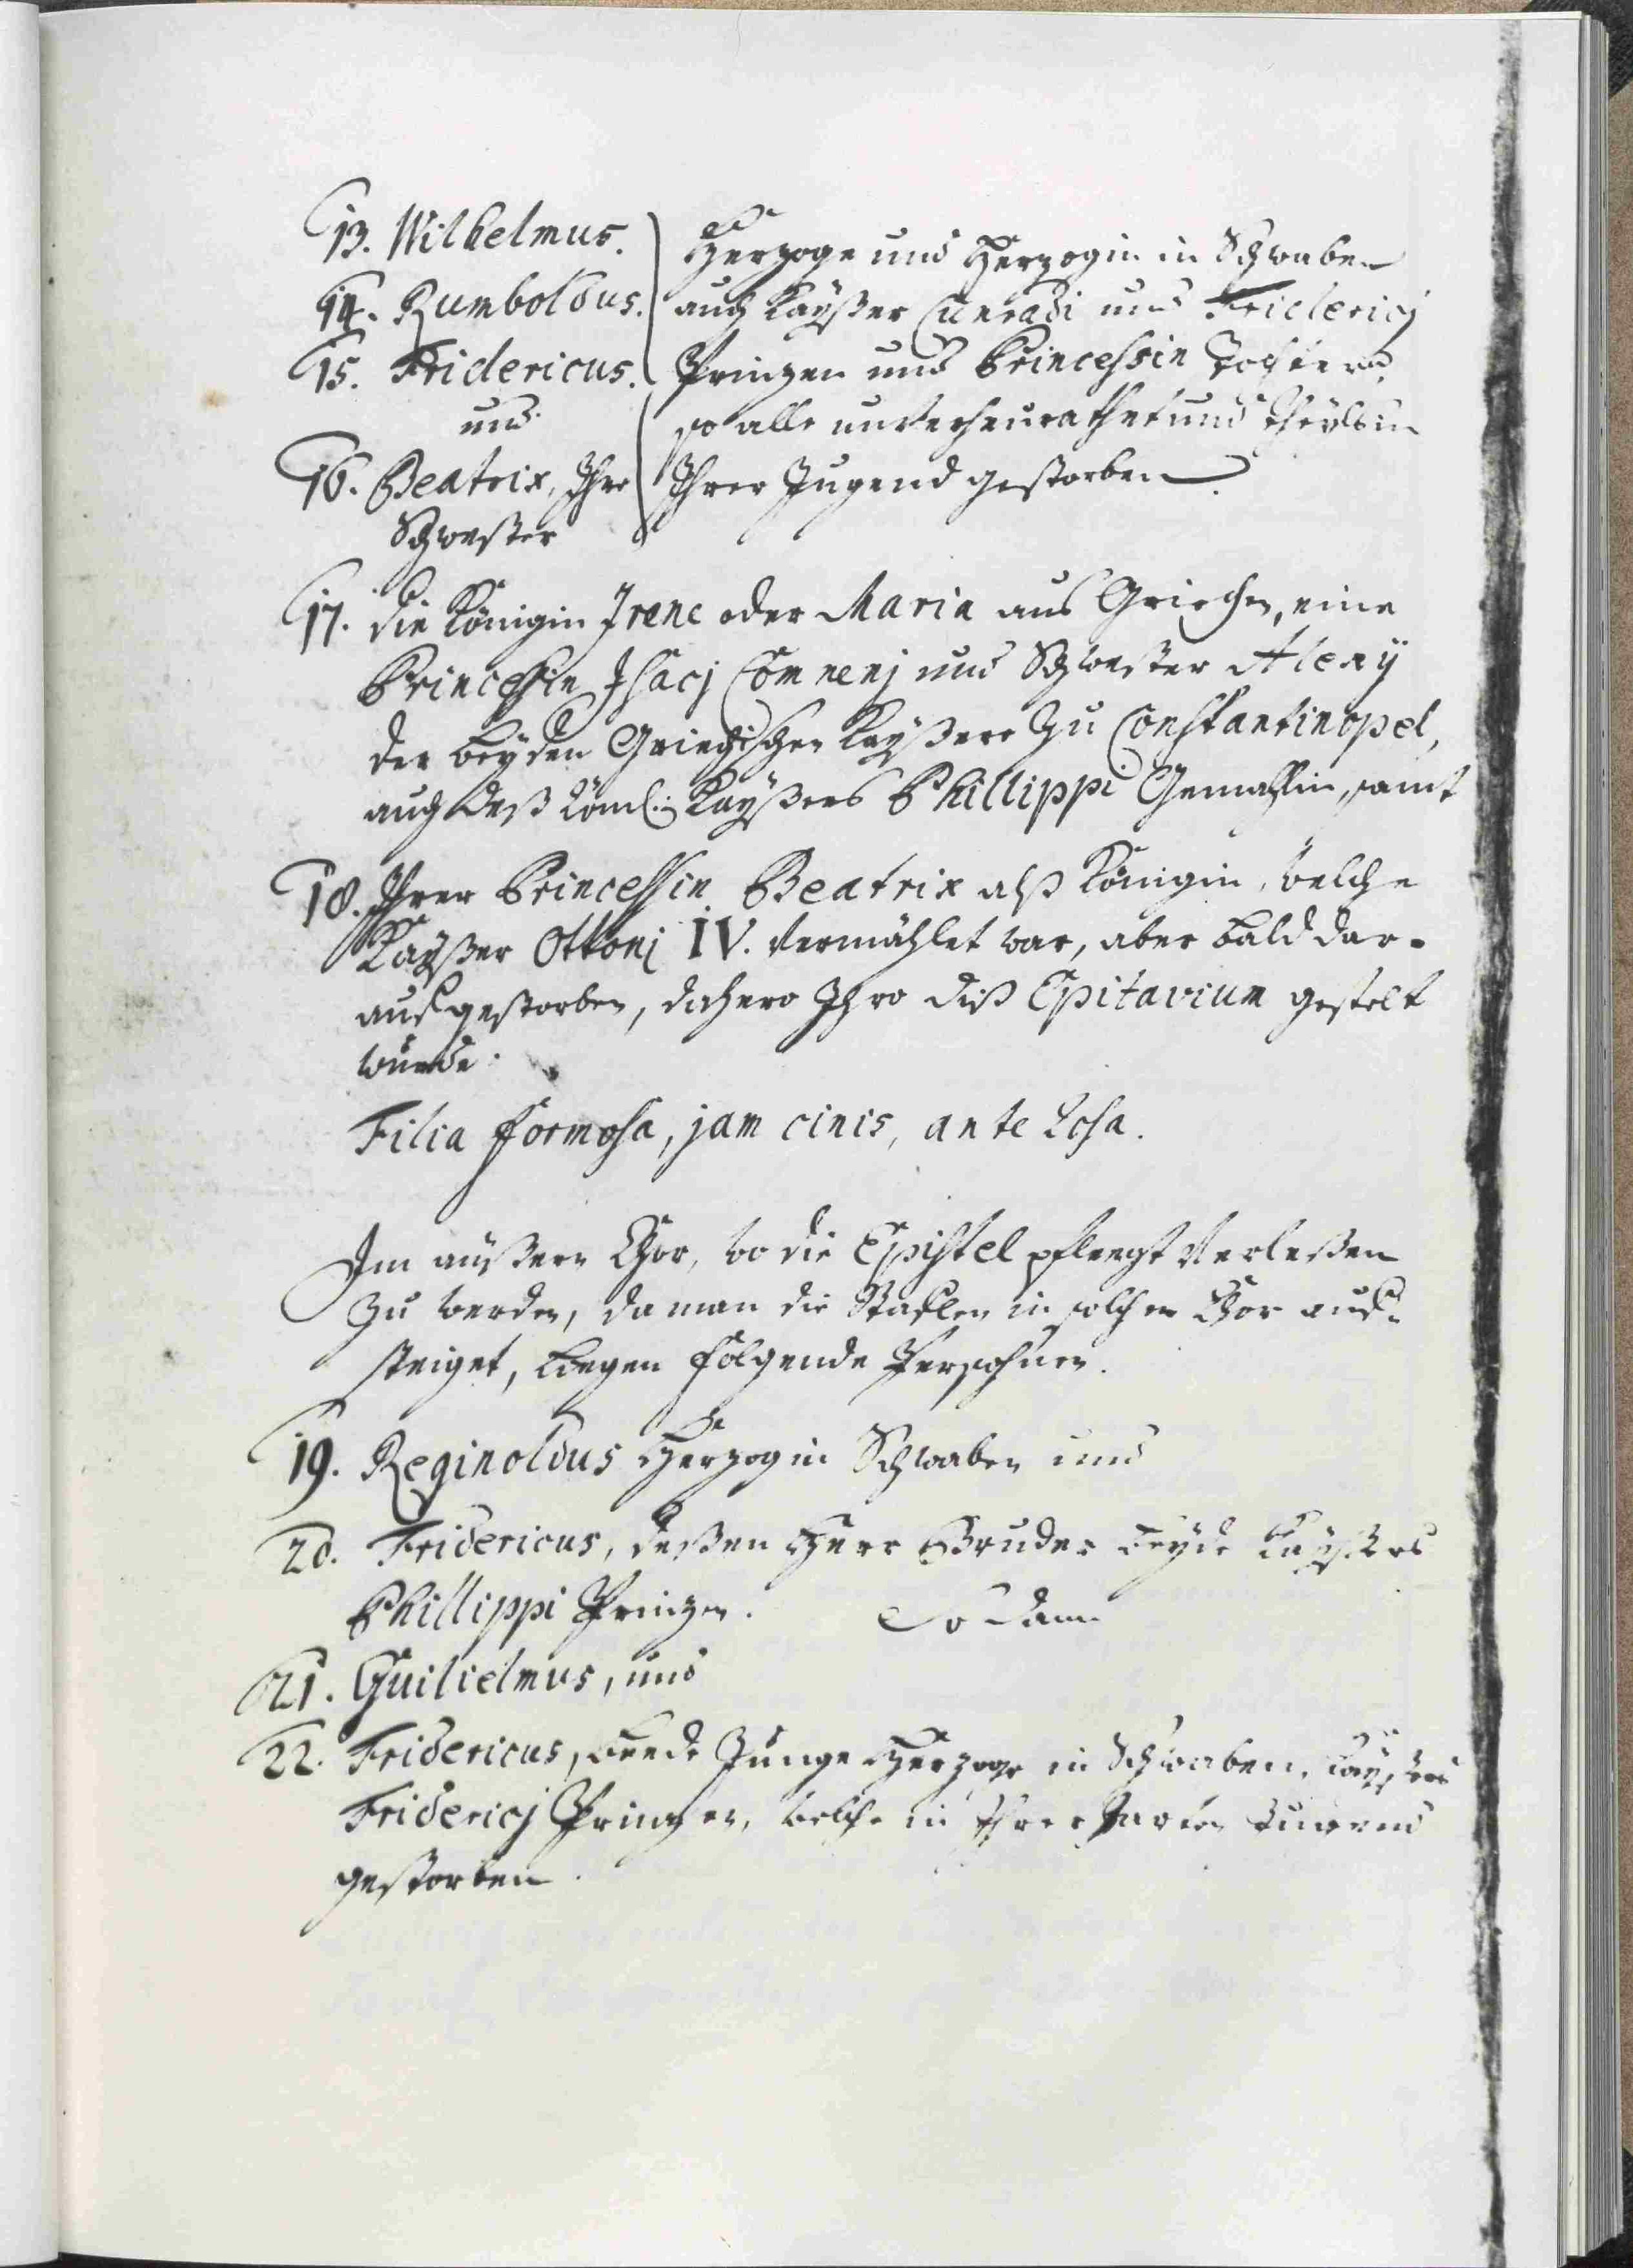 13. Wilhelmus.
14. Rumboldus.
15. Fridericus.
und
16. Beatrix, Ihr
Schwester
Herzoge und Herzogin in Schwaben
auch Kayßer Cunradi und Friderici
Prinzen und Princessin Töchter
so alle unverheurathet und theils in
Ihrer Jugend gestorben.
17. die Königin Irene oder Maria aus Griechen, eine
Princessin Isacj Comnenj und Schwester Alexij
der beyden Griechischen Kayßere zu Constantinopel,
auch deß Röml: Kayßers Phillippi Gemahlin, samt
18. Ihrer Princessin Beatrix alß Königin, welche
Kayßer Ottonj IV. vermählet war, aber bald dar-
auf gestorben, dahero Ihro diß Epitavium gestelt
wurde:
Filia formosa, jam cinis, ante Rosa.
Im äußern Chor, wo die Epistel pflegt verleßen
zu werden, da man die Staflen in solchen Chor auf-
steiget, liegen folgende Persohnen.
19. Reginoldus Herzog in Schwaben und
20. Fridericus, deßen Herr Bruder beyde Kayßers
Phillippi Prinzen. So dann
21. Guilielmus, und
22. Fridericus, beede Junge Herzoge in Schwaben, Kayßers
Friderici Prinzen, welche in Ihrer zarten Jugend
gestorben.